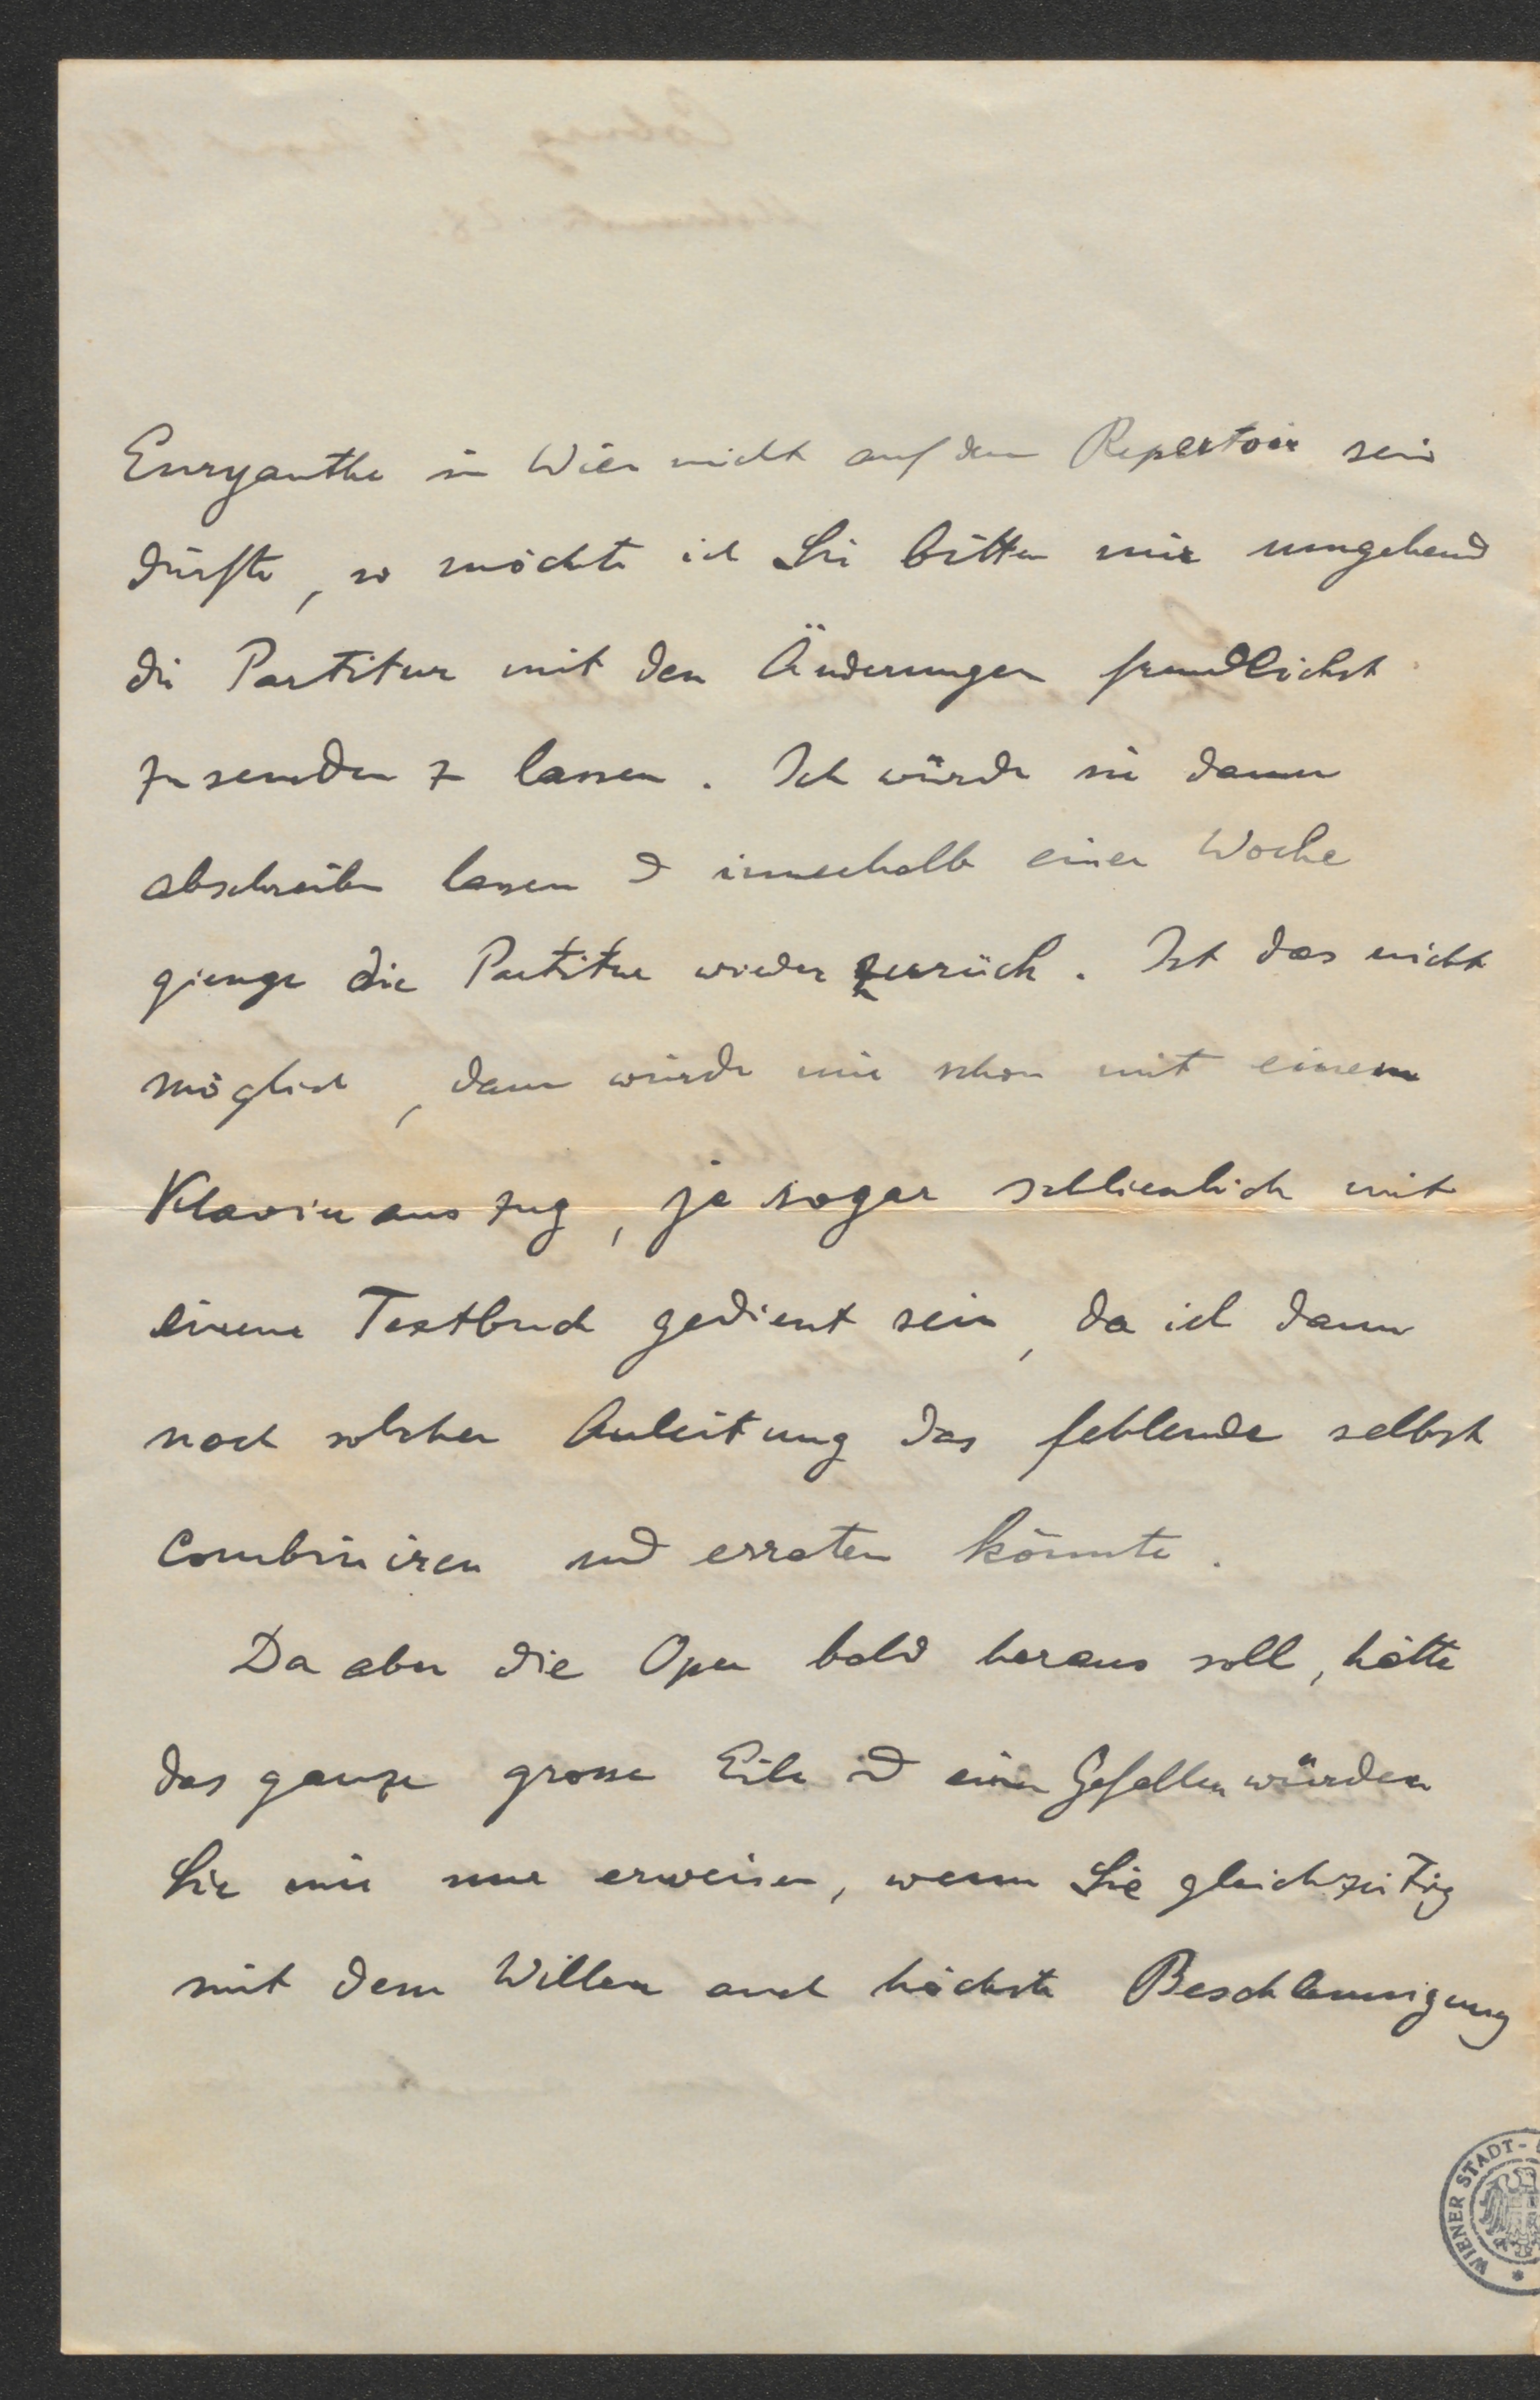 Euryanthe in Wien nicht auf dem Repertoir sein
dürfte, so möchte ich Sie bitten mir umgehend
die Partitur mit den Änderungen freundlichst
zu senden zu lassen. Ich würde sie dann
abschreiben lassen & innerhalb einer Woche
gienge die Partitur wieder zurück. Ist das nicht
möglich, dann würde mir schon mit einem
Klavierauszug, ja sogar schliesslich mit
einem Textbuch gedient sein, da ich dann
nach solcher Anleitung das fehlende selbst
combiniren und erraten könnte.
Da aber die Oper bald heraus soll, hätte
das ganze grosse Eile & einen Gefallen würden
Sie mir nur erweisen, wenn Sie gleichzeitig
mit dem Willen auch höchste Beschleunigung
WIENER STADT-